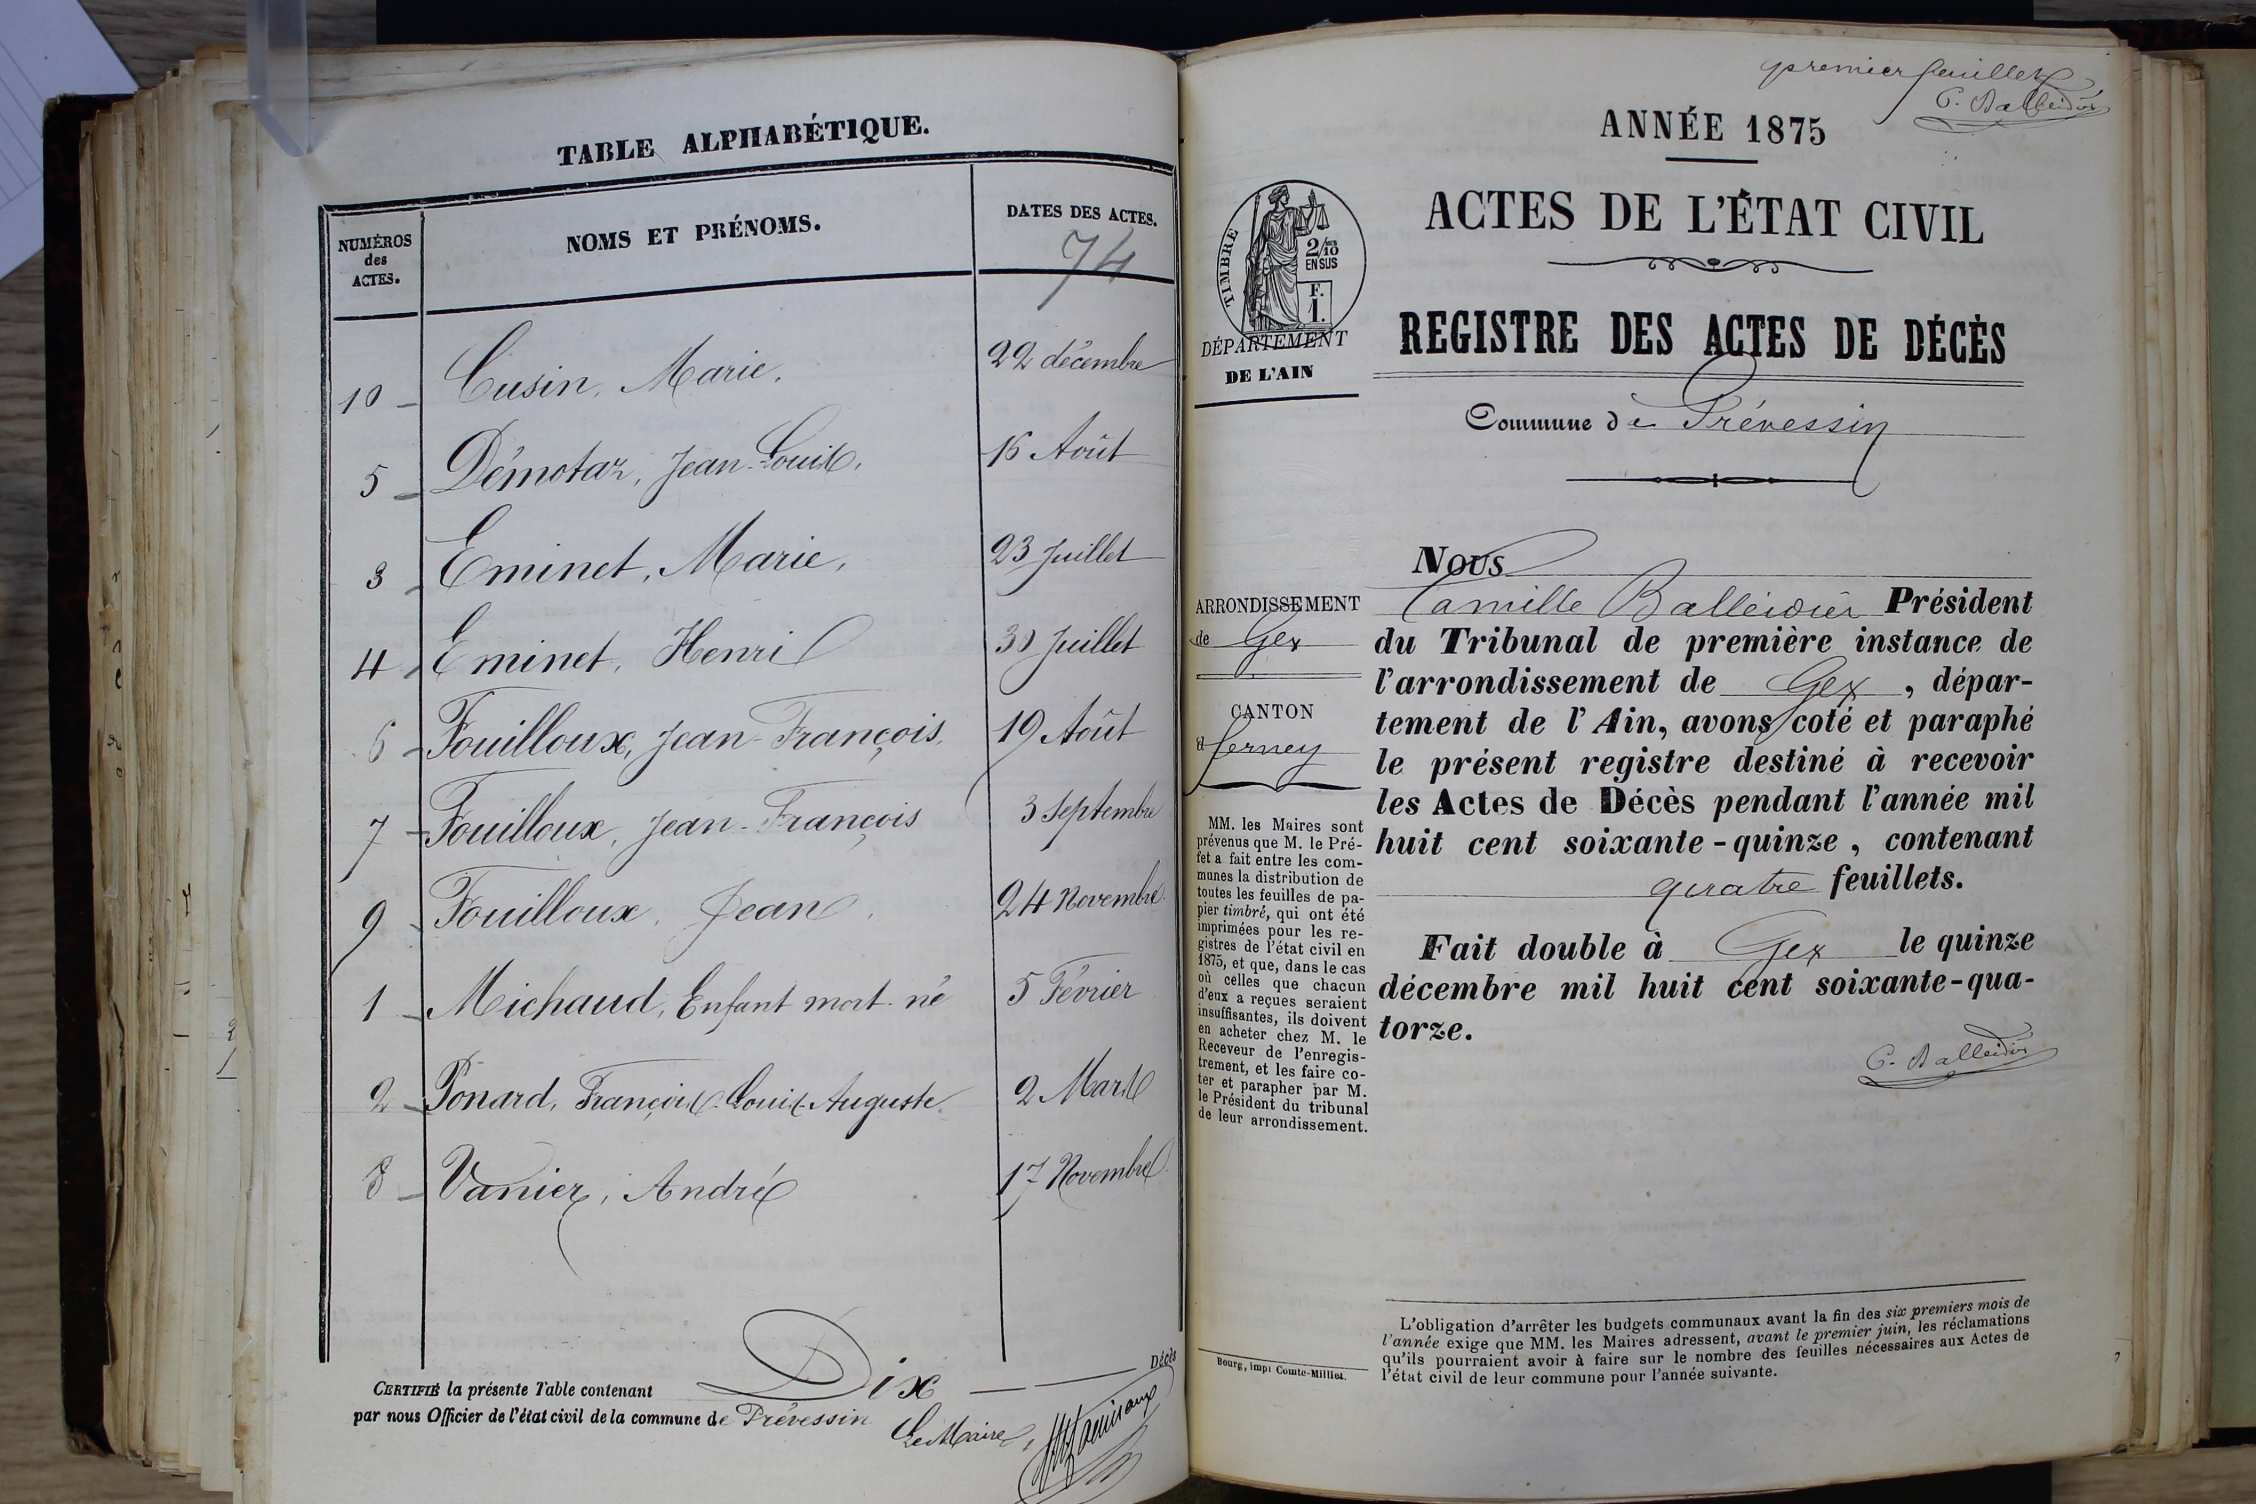 TABLE ALPHABÉTIQUE.
NUMÉROS
des
ACTES.
NOMS ET PRÉNOMS.
DATES DES ACTES.
74
10 Cusin, Marie. 22 décembre
5 Démotaz, Jean-Louis. 16 Août
3 Eminet, Marie, 23 Juillet
4 Eminet, Henri 30 Juillet
6 Fouilloux, Jean-François. 19 Août
7 Fouilloux, Jean-François 3 Septembre
9 Fouilloux, Jean. 24 Novembre
1 Michaud, Enfant mort-né 5 Février
2 Ponard, François-Louis-Auguste. 2 Mars
8 Vanier, André 17 Novembre
CERTIFIÉ la présente Table contenant Dix Décès
par nous Officier de l'état civil de la commune de Prévessin
Le Maire,
premier feuillet
C. Balleidier
ANNÉE 1875
ACTES DE L'ÉTAT CIVIL
TIMBRE
2/10 EN SUS
F. 1.
DÉPARTEMENT
DE L'AIN
REGISTRE DES ACTES DE DÉCÈS
Commune de Prévessin
ARRONDISSEMENT
de Gex
CANTON
d Ferney
MM. les Maires sont
prévenus que M. le Pré-
fet a fait entre les com-
munes la distribution de
toutes les feuilles de pa-
pier timbré, qui ont été
imprimées pour les re-
gistres de l'état civil en
1875, et que, dans le cas
où celles que chacun
d'eux a reçues seraient
insuffisantes, ils doivent
en acheter chez M. le
Receveur de l'enregis-
trement, et les faire co-
ter et parapher par M.
le Président du tribunal
de leur arrondissement.
Nous
Camille Balleidier Président
du Tribunal de première instance de
l'arrondissement de Gex, dépar-
tement de l'Ain, avons coté et paraphé
le présent registre destiné à recevoir
les Actes de Décès pendant l'année mil
huit cent soixante-quinze, contenant
quatre feuillets.
Fait double à Gex le quinze
décembre mil huit cent soixante-qua-
torze.
C. Balleidier
Bourg, impr Comte-Milliet.
L'obligation d'arrêter les budgets communaux avant la fin des six premiers mois de
l'année exige que MM. les Maires adressent, avant le premier juin, les réclamations
qu'ils pourraient avoir à faire sur le nombre des feuilles nécessaires aux Actes de
l'état civil de leur commune pour l'année suivante.